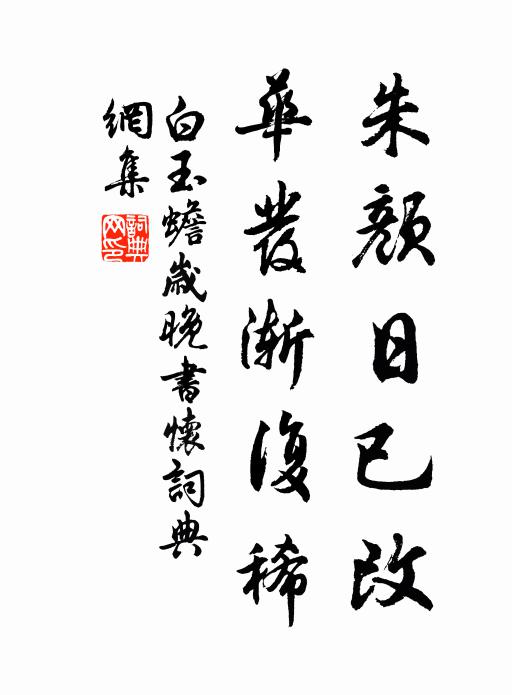 朱顏日已改
華發漸復稀
白玉蟾歲晚書懷詞典
網集
詞典
网印